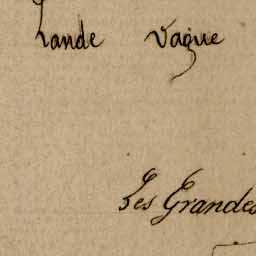 Lande Vague
Les Grandes